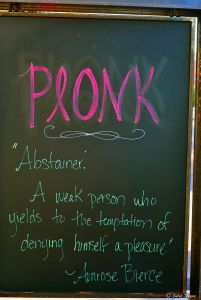 PLONK
"Abstainer:
A weak person who
yields to the temptation of
denying himself a pleasure"
~ Ambrose Bierce